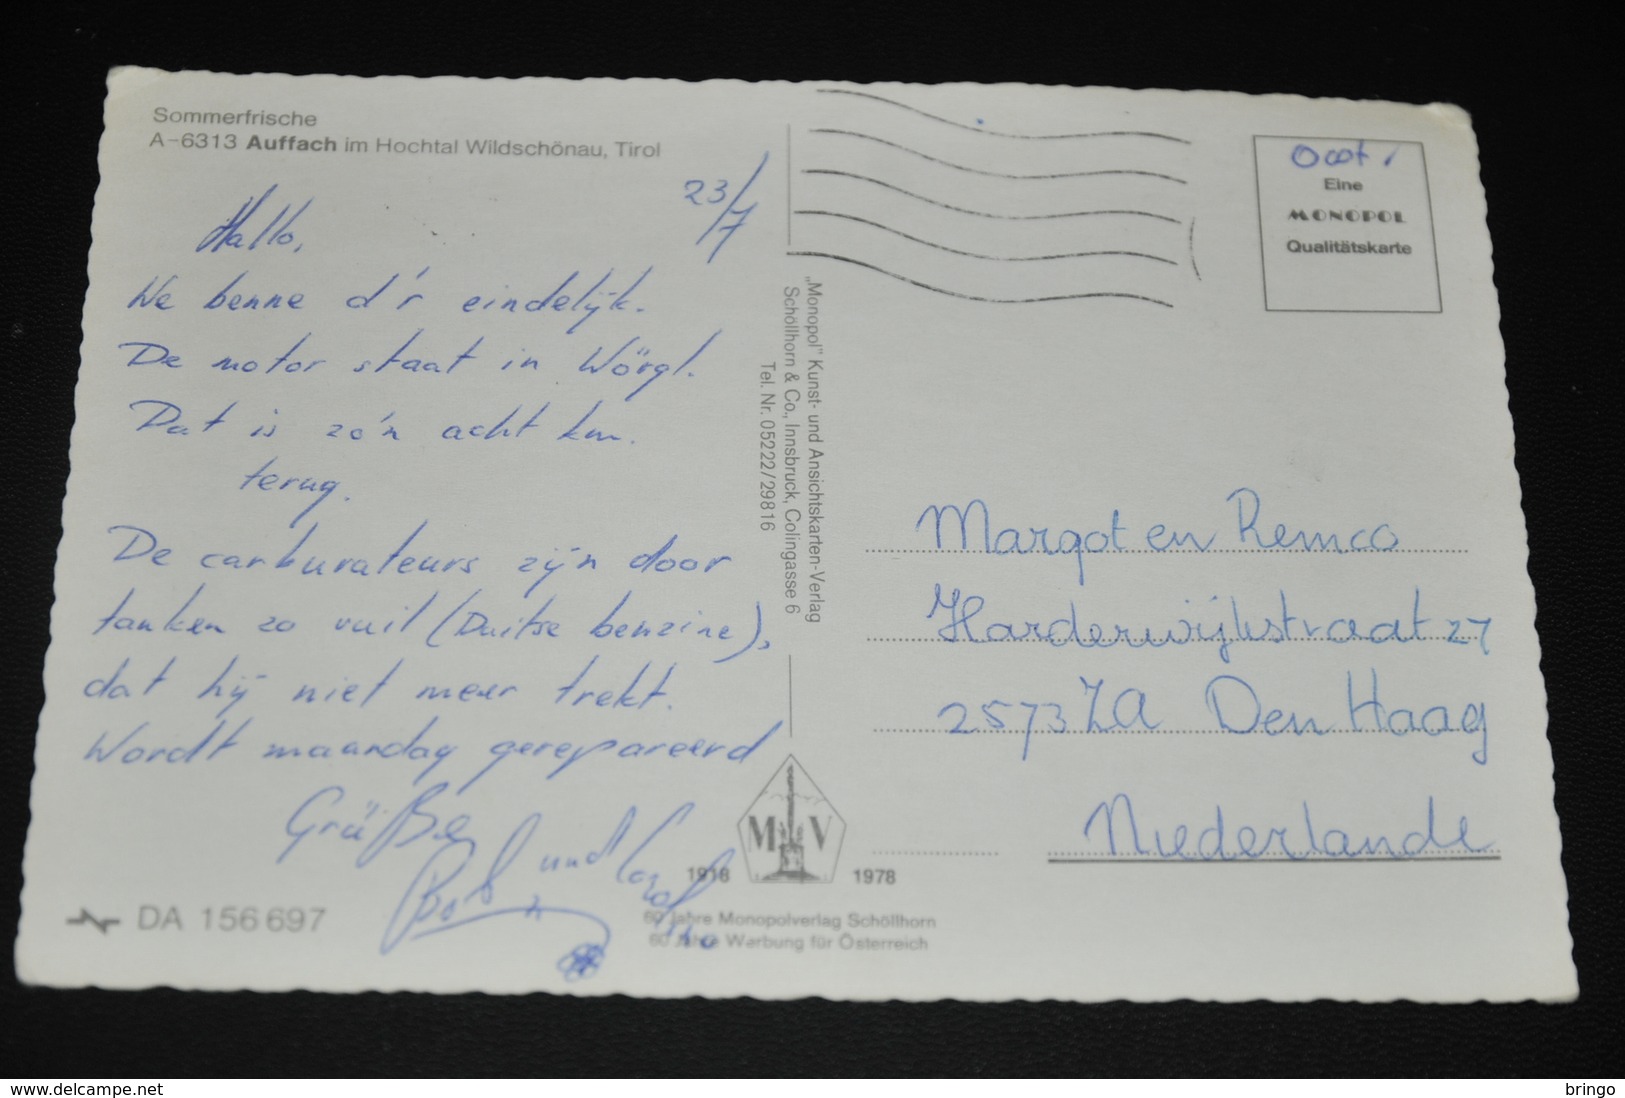 Sommerfrische
A-6313 Auffach im Hochtal Wildschönau, Tirol
23/7
Hallo,
We benne d'r eindelijk.
De motor staat in Wörgl.
Dat is zo'n acht km.
terug.
De carburateurs zijn door
tanken zo vuil (Duitse benzine),
dat hij niet meer trekt.
Wordt maandag gerepareerd
Grüße
und
DA 156 697
"Monopol" Kunst- und Ansichtskarten-Verlag
Schöllhorn & Co., Innsbruck, Colingasse 6
Tel. Nr. 05222/29816
M V
1918 1978
60 Jahre Monopolverlag Schöllhorn
60 Jahre Werbung für Österreich
Eine
MONOPOL
Qualitätskarte
Margot en Remco
Harderwijkstraat 27
2573 ZA Den Haag
Niederlande
https://www.delcampe.net
bringo